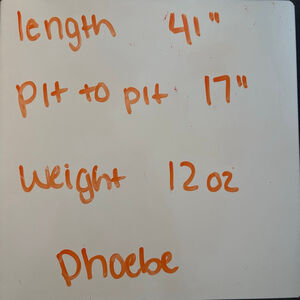 length 41"
pit to pit 17"
weight 12 oz
Phoebe